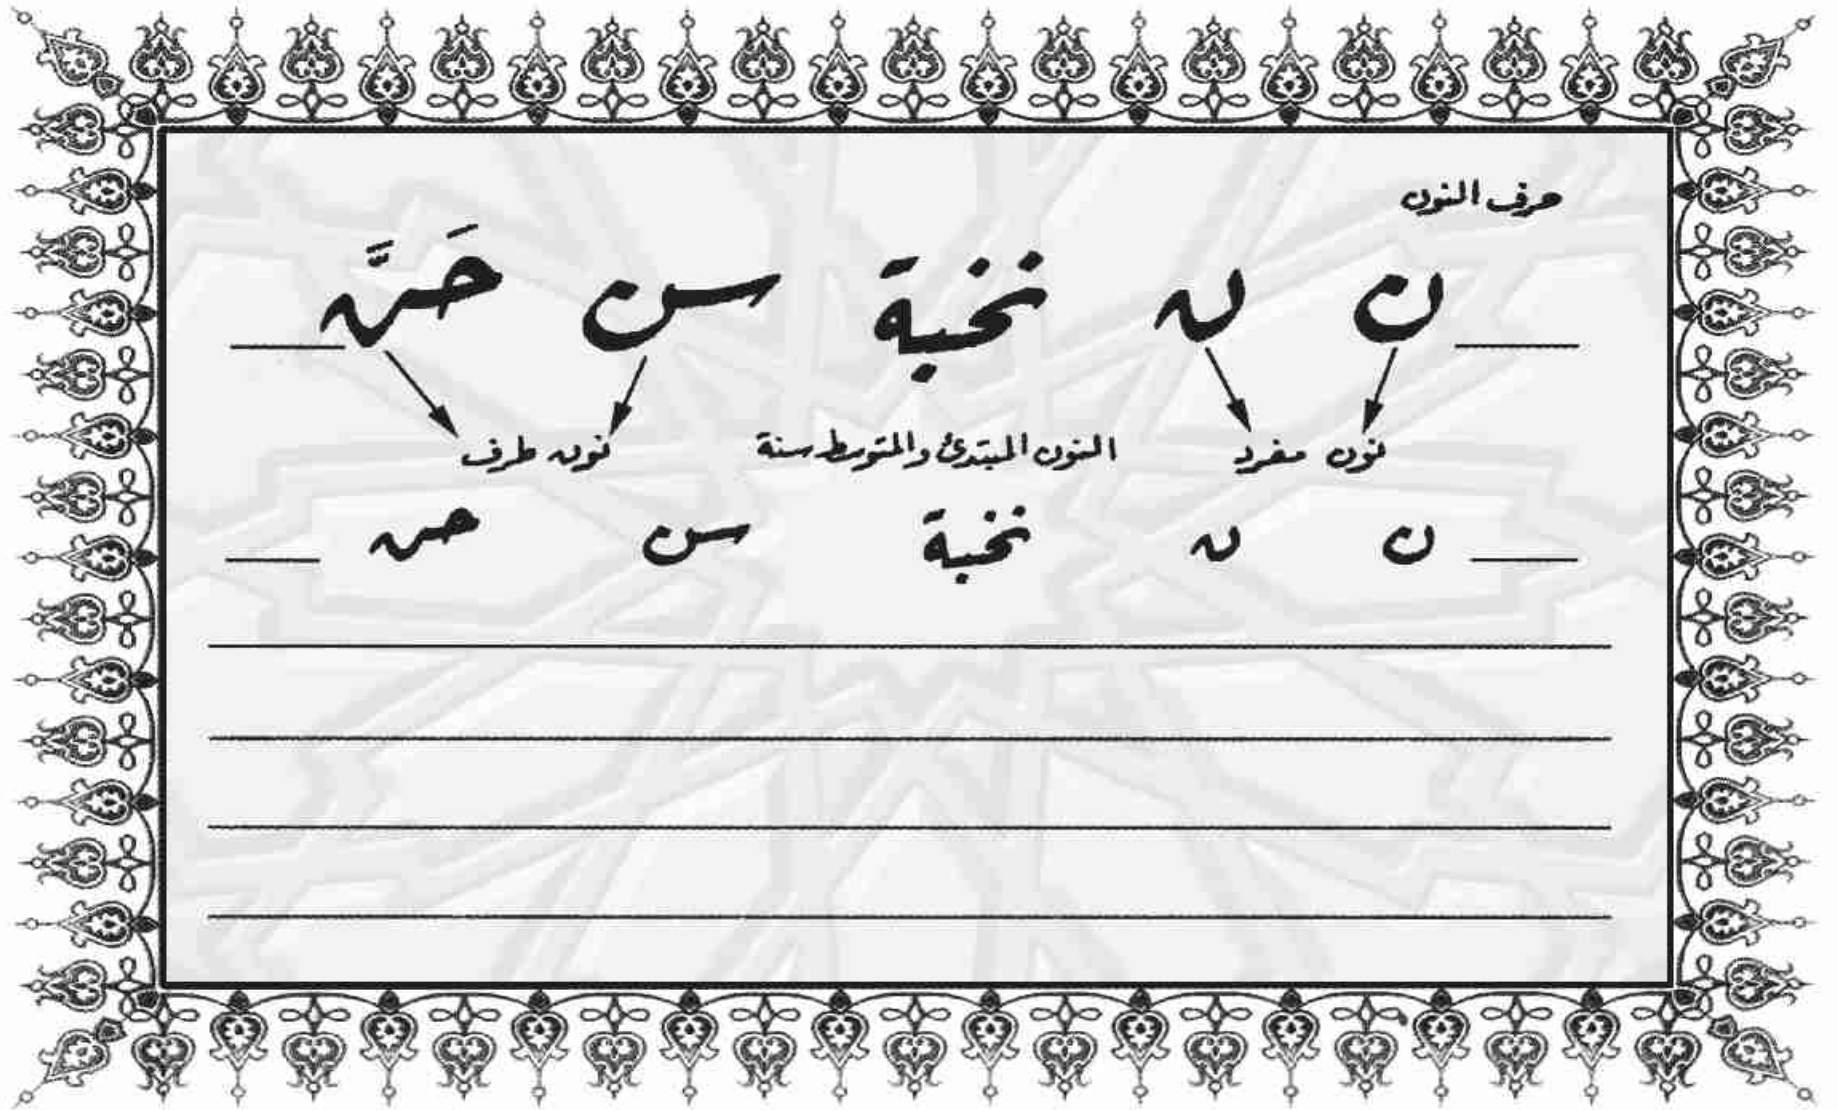 حرف النون
ن ن نخبة سن حَنَّ
نون مفرد النون المبتدئ والمتوسط سنة نون طرف
ن ن نخبة سن حن